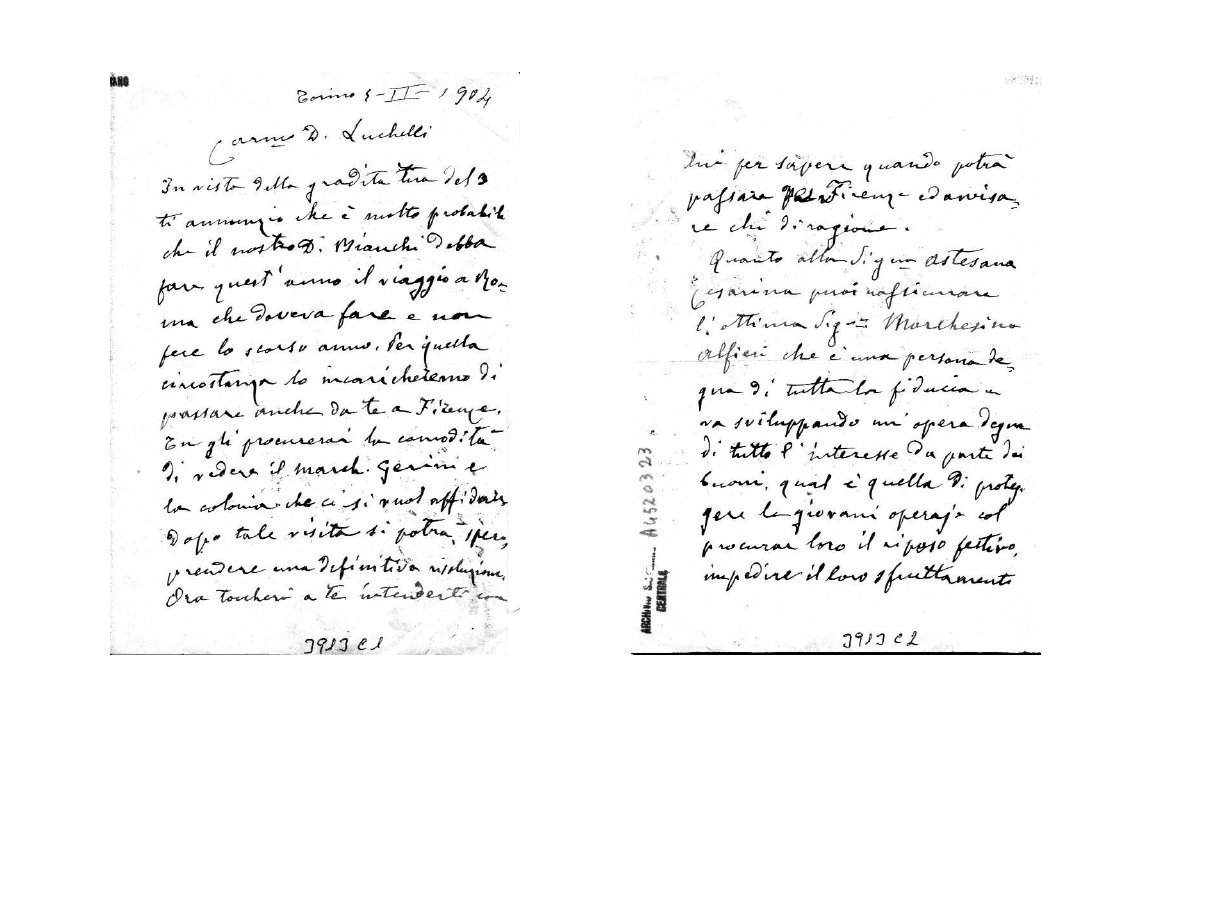 Torino 5-II-1904
Carmo D. Luchelli
In vista della gradita tua del 3
ti annunzio che è molto probabile
che il nostro D. Bianchi debba
fare quest'anno il viaggio a Ro=
ma che doveva fare e non
fece lo scorso anno. Per quella
circostanza lo incaricheremo di
passare anche da te a Firenze.
Tu gli procurerai la comodità
di vedere il march. Gerini e
la colonia che ci si vuol affidare
Dopo tale visita si potrà, spero,
prendere una definitiva risoluzione.
Ora toccherà a te intenderti con
3913 C1
lui per sapere quando potrà
passare per Firenze ed avvisa=
re chi di ragione.
Quanto alla Signa Astesana
Cesarina puoi rassicurare
l'ottima Sigra Marchesina
Alfieri che è una persona de=
gna di tutta la fiducia e
va sviluppando un'opera degna
di tutto l'interesse da parte dei
buoni, qual è quella di proteg=
gere le giovani operaje col
procurar loro il riposo festivo,
impedire il loro sfruttamento
A4520323
CENTRALE
3913 C2